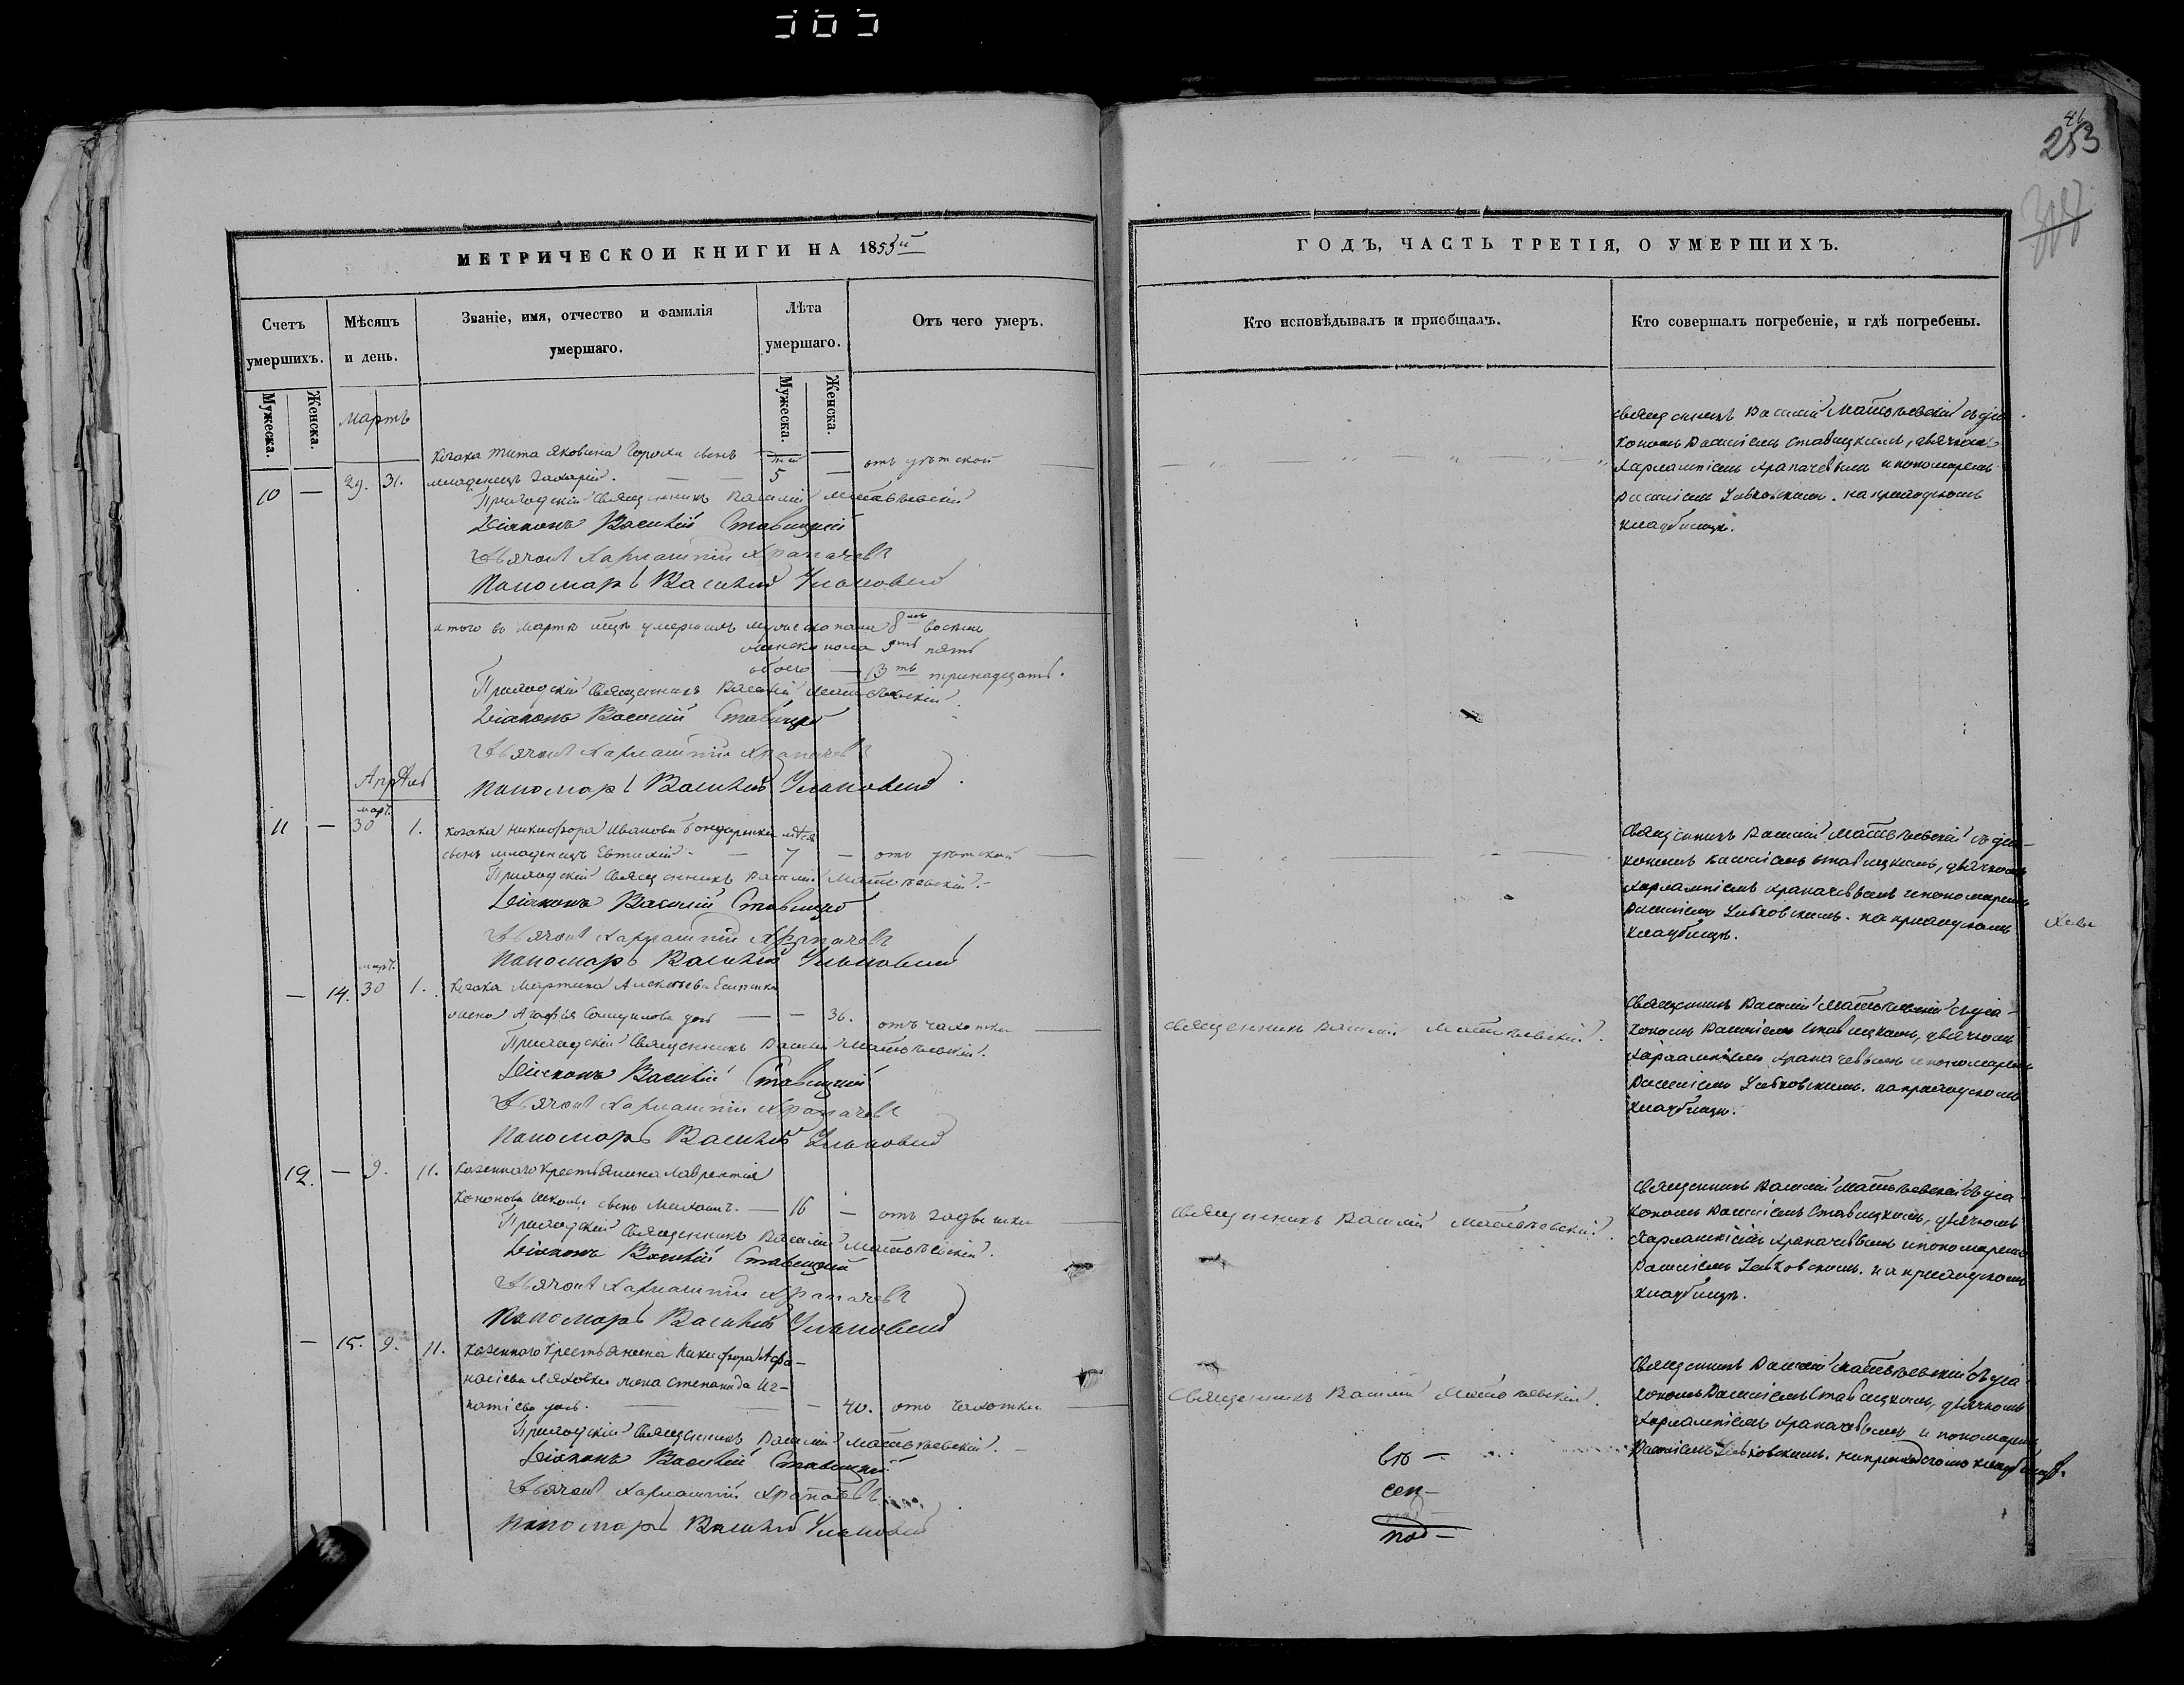 46
253
МЕТРИЧЕСКОЙ КНИГИ НА 1855й
Счетъ умершихъ.
Мѣсяцъ и день.
Званіе, имя, отчество и фамилія умершаго.
Лѣта умершаго.
Отъ чего умеръ.
Мужеска.
Женска.
Мужеска.
Женска.
мартъ
козака Тита Яковина сынъ
10 — 29. 31. младенецъ Захарій. — — 5 — отъ дѣтской
Приходскій Священникъ Василій Матвѣевскій
Діаконъ Василій Ставицкій
Дьячокъ Харлампій Храпачевъ
Пономарь Василій
итого въ Мартѣ мцѣ умершихъ мужеска пола 8мь восемь
женска пола 5ть пять
обоего — 13ть тринадцать.
Приходскій Священникъ Василій Матвѣевскій.
Діаконъ Василій Ставицкій
Дьячокъ Харлампій Храпачевъ
Пономарь Василій
Апрѣль
март.
11 — 30 1. козака Никифора Иванова Бондаренка
сынъ младенецъ Евтихій — — 7 — отъ дѣтской
Приходскій Священникъ Василій Матвѣевскій.
Діаконъ Василій Ставицкій
Дьячокъ Харлампій Храпачевъ
Пономарь Василій
март.
— 14. 30 1. Козака Мартина Алексѣева
жена Агафья дочь — — 36. отъ чахотки
Приходскій Священникъ Василій Матвѣевскій.
Діаконъ Василій Ставицкій
Дьячокъ Харлампій Храпачевъ
Пономарь Василій
12. — 9. 11. Казеннаго крестьянина Лаврентія
Кононова сынъ Михаилъ. — 16 — отъ задышки
Приходскій Священникъ Василій Матвѣевскій.
Діаконъ Василій Ставицкій
Дьячокъ Харлампій Храпачевъ
Пономарь Василій
— 15. 9. 11. Казеннаго крестьянина Никифора Афа-
насіева Ляховки жена Степанида Иг-
натіева дочь. — — — 40. отъ чахотки
Приходскій Священникъ Василій Матвѣевскій.
Діаконъ Василій Ставицкій
Дьячокъ Харлампій Храпачевъ
Пономарь Василій
ГОДЪ, ЧАСТЬ ТРЕТІЯ, О УМЕРШИХЪ.
Кто исповѣдывалъ и пріобщалъ.
Кто совершалъ погребеніе, и гдѣ погребены.
Священникъ Василій Матвѣевскій съ діа-
кономъ Василіемъ Ставицкимъ, дьячкомъ
Харлампіемъ Храпачевымъ и пономаремъ
Василіемъ на приходскомъ
кладбищѣ.
Священникъ Василій Матвѣевскій съ діа-
кономъ Василіемъ Ставицкимъ, дьячкомъ
Харлампіемъ Храпачевымъ и пономаремъ
Василіемъ на приходскомъ
кладбищѣ.
Священникъ Василій Матвѣевскій.
Священникъ Василій Матвѣевскій съ діа-
кономъ Василіемъ Ставицкимъ, дьячкомъ
Харлампіемъ Храпачевымъ и пономаремъ
Василіемъ на приходскомъ
кладбищѣ.
Священникъ Василій Матвѣевскій.
Священникъ Василій Матвѣевскій съ діа-
кономъ Василіемъ Ставицкимъ, дьячкомъ
Харлампіемъ Храпачевымъ и пономаремъ
Василіемъ на приходскомъ
кладбищѣ.
Священникъ Василій Матвѣевскій.
Священникъ Василій Матвѣевскій съ діа-
кономъ Василіемъ Ставицкимъ, дьячкомъ
Харлампіемъ Храпачевымъ и пономаремъ
Василіемъ на приходскомъ кладбищѣ.
сеп-
под-